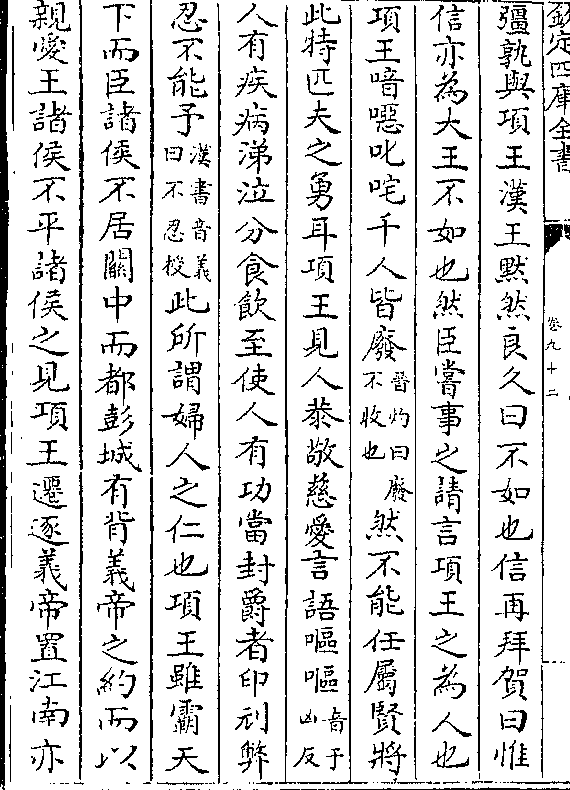 欽定四庫全書
卷九十二
彊孰與項王漢王黙然良久曰不如也信再拜賀曰惟
信亦為大王不如也然臣嘗事之請言項王之為人也
項王喑噁叱咤千人皆廢晉灼曰廢不收也然不能任屬賢將
此特匹夫之勇耳項王見人恭敬慈愛言語嘔嘔音于凶反
人有疾病涕泣分食飲至使人有功當封爵者印刓弊
忍不能予漢書音義曰不忍授此所謂婦人之仁也項王雖霸天
下而臣諸侯不居關中而都彭城有背義帝之約而以
親愛王諸侯不平諸侯之見項王遷逐義帝置江南亦